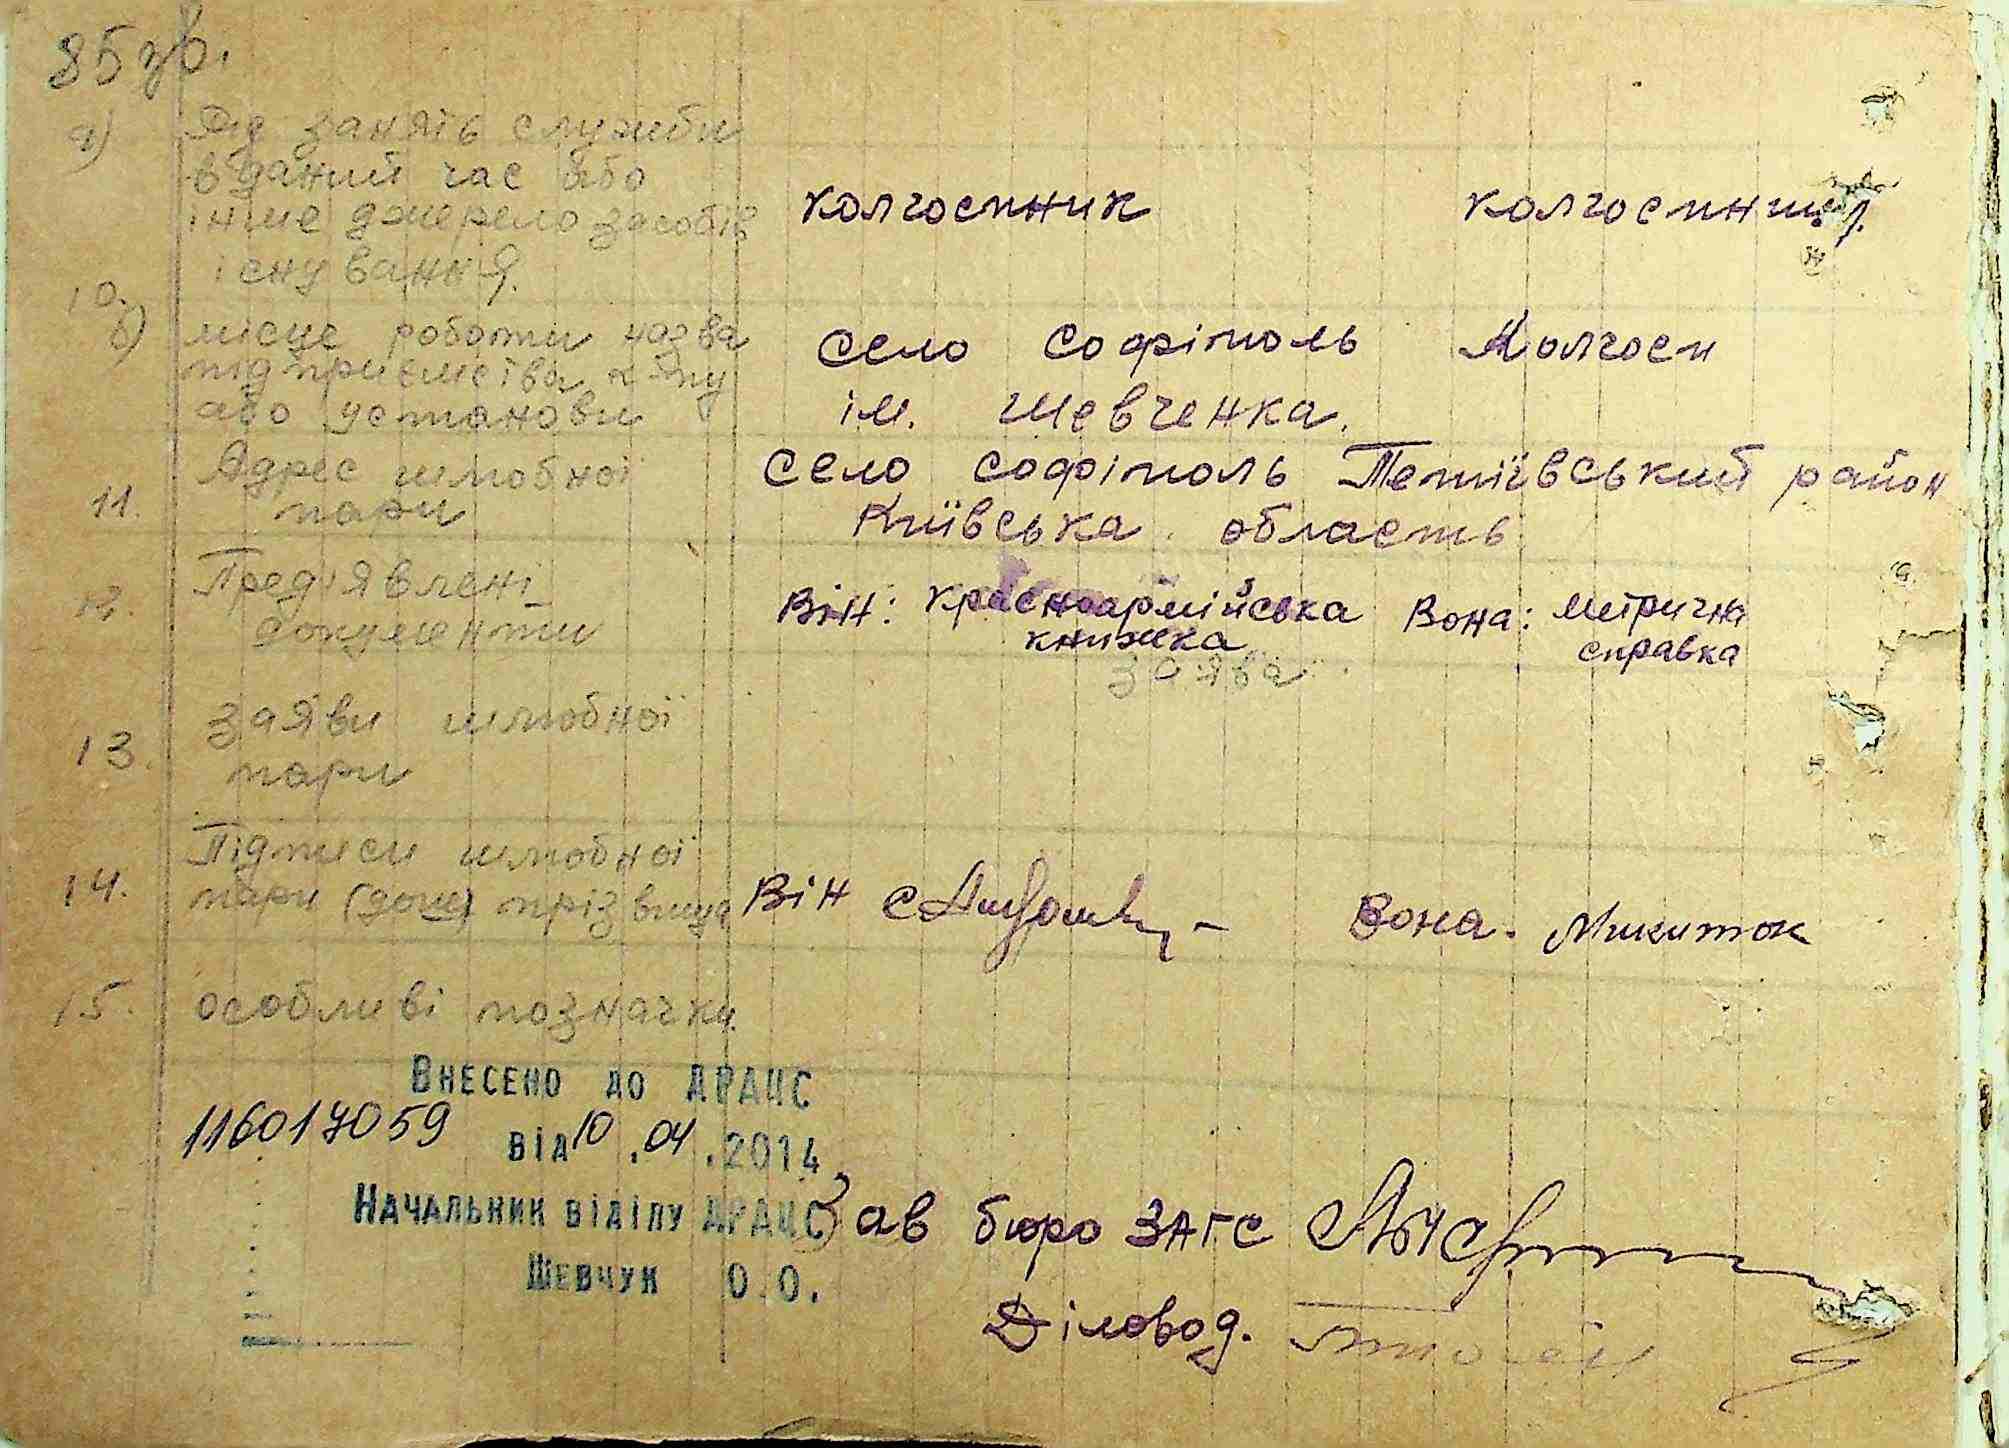 85 зв.
а) Рід занять служби
в даний час або
інше джерело засобів
існування.
колгоспник колгоспниця.
10.
б) місце роботи назва
підприємства к-пу
або установи
село Софіполь Колгосп
ім. Шевченка.
11. Адрес шлюбної
пари
село Софіполь Тетіївський район
Київська область
12. Пред'явлені
документи
Він: красноармійська
книжка
Вона: метрична
справка
заява
13. Заяви шлюбної
пари
14. Підписи шлюбної
пари (дош) прізвища
Він Вона. Микитюк
15. особливі позначки.
Внесено до ДРАЦС
116017059 від 10.04.2014
Начальник відділу ДРАЦС
Шевчук О.О.
Зав бюро ЗАГС
Діловод.